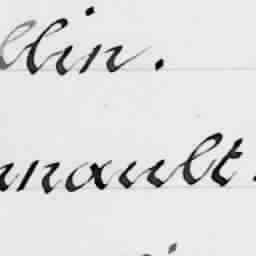 llin.
nnault.